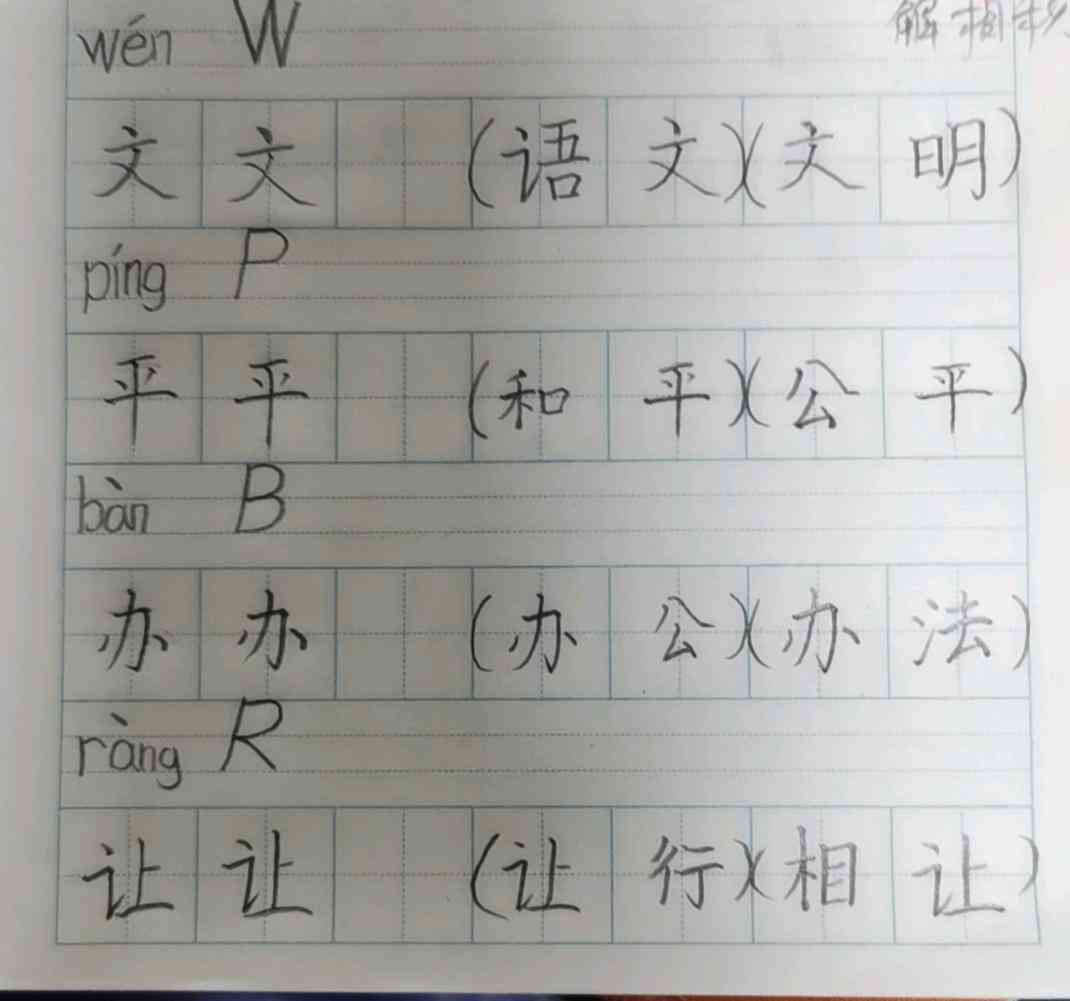 wén W
文 文 (语 文)(文 明)
píng P
平 平 (和 平)(公 平)
bàn B
办 办 (办 公)(办 法)
ràng R
让 让 (让 行)(相 让)